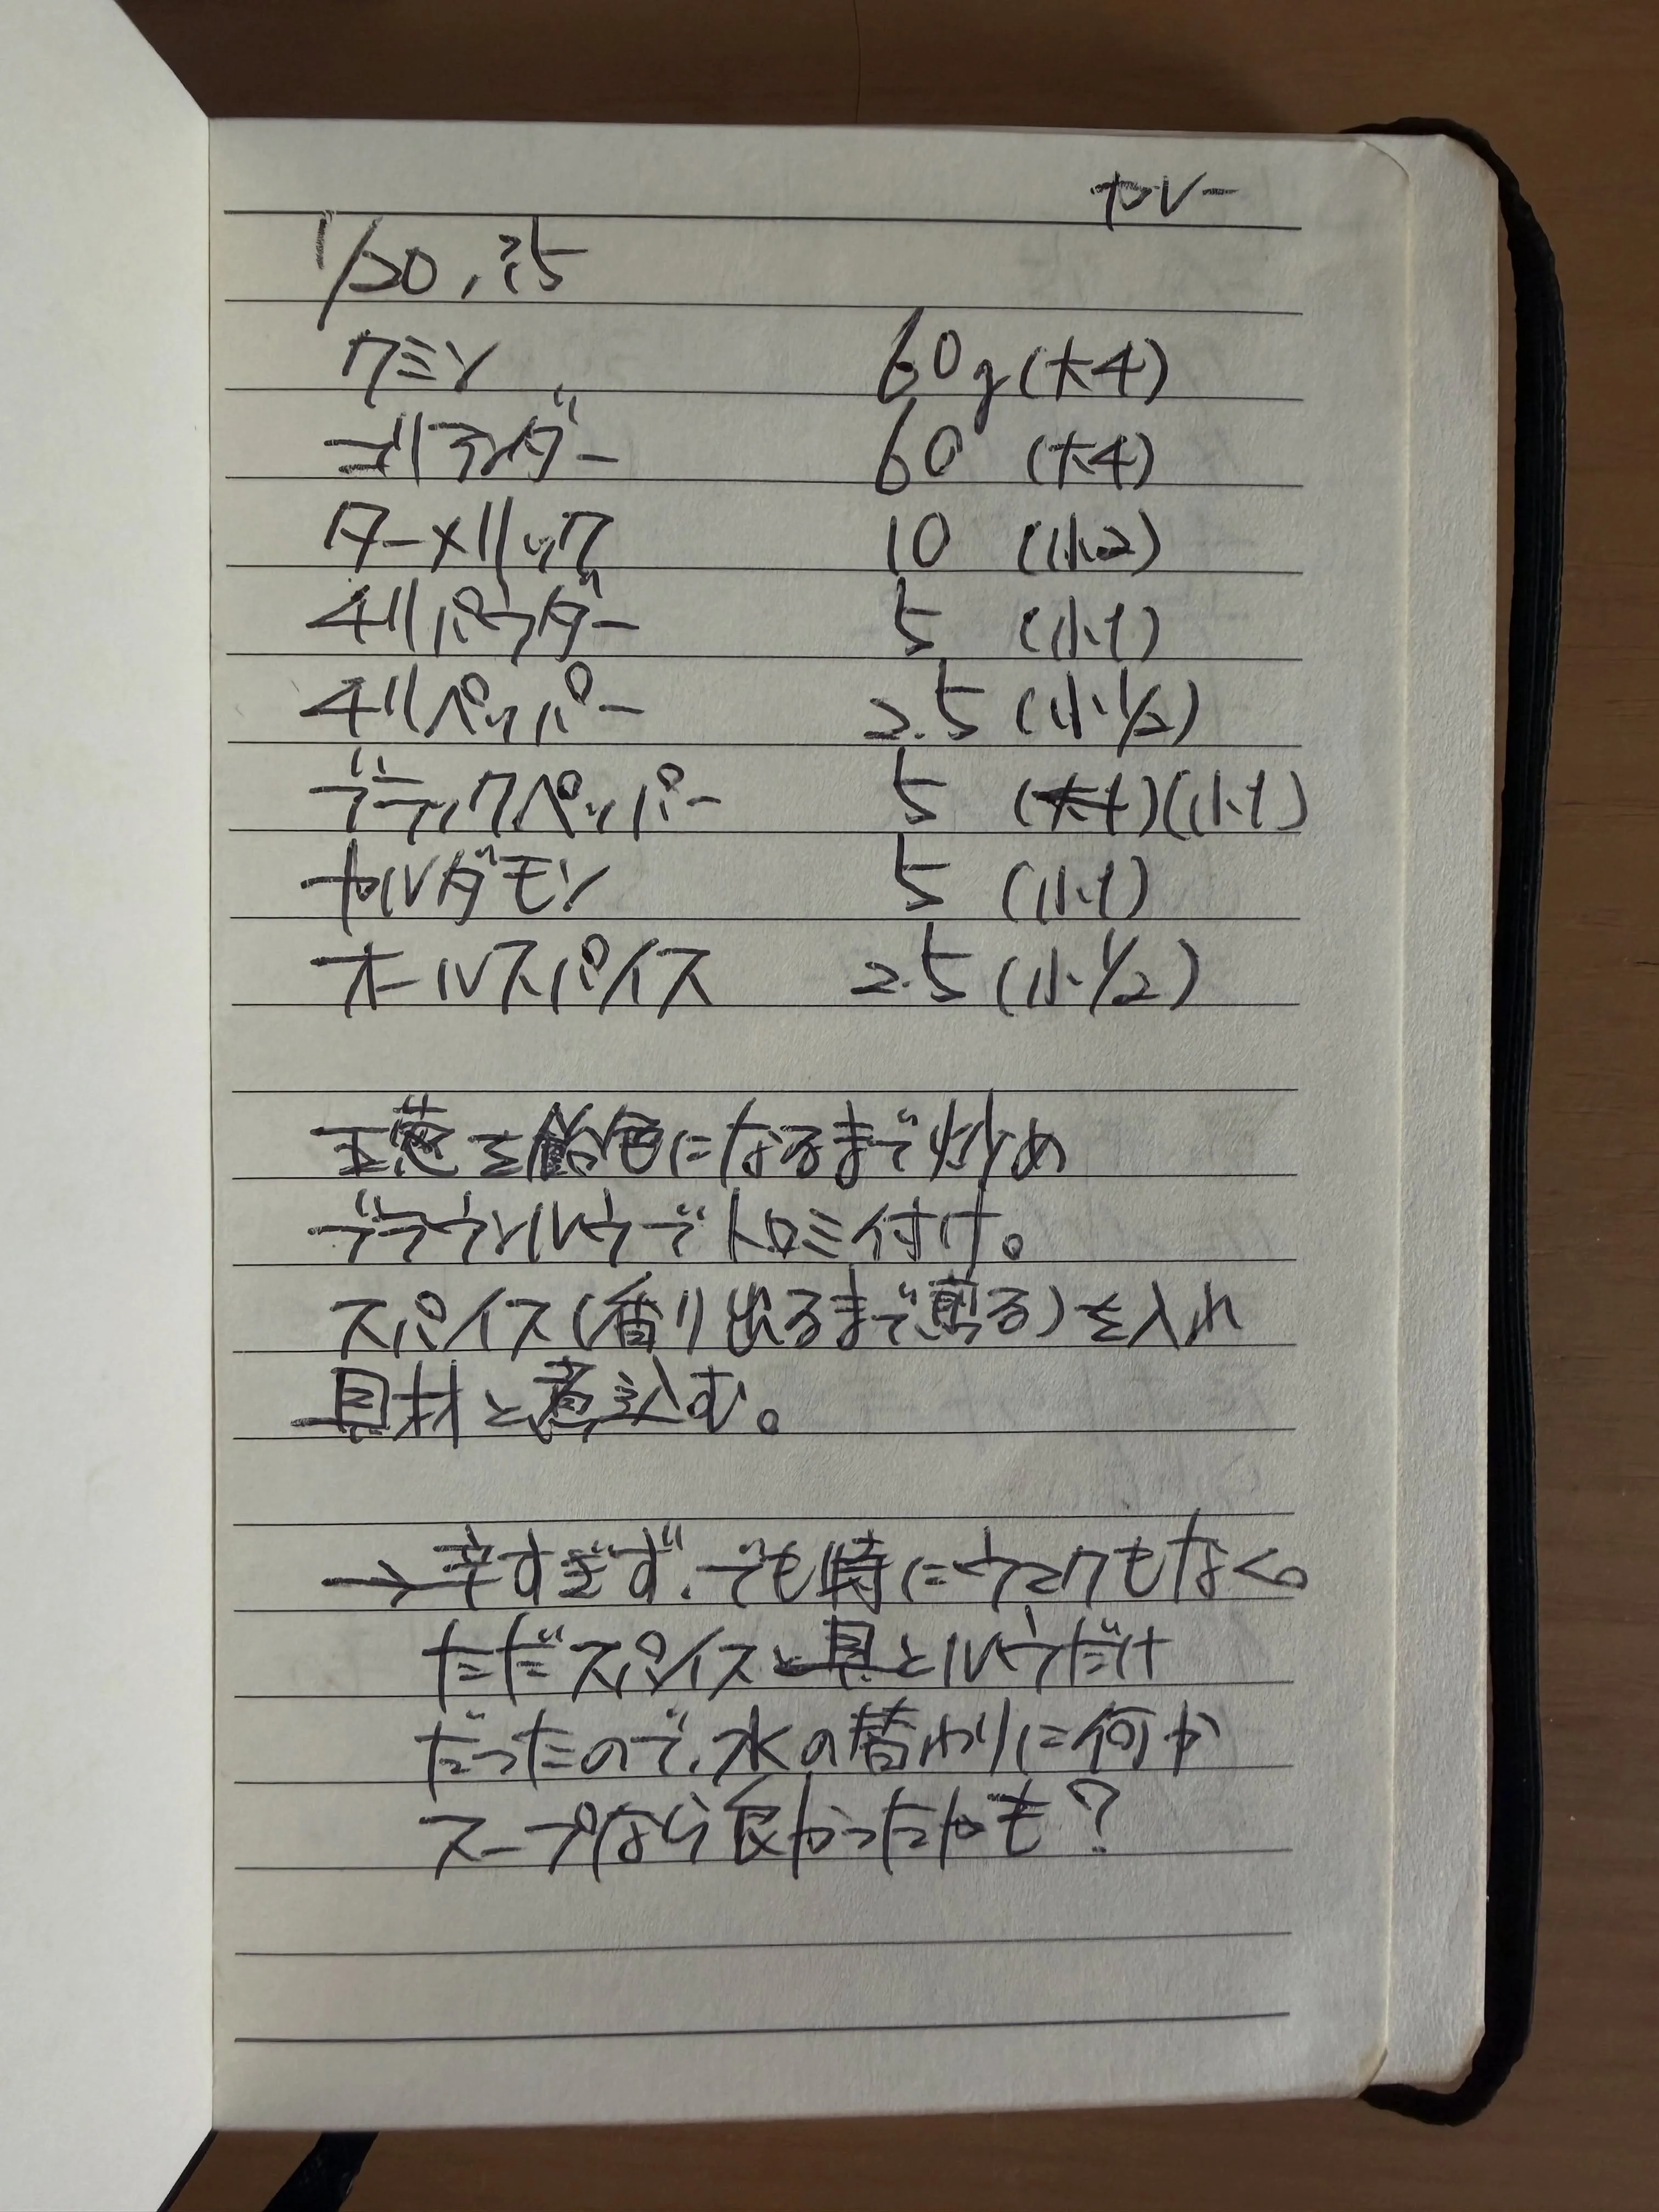 カレー
1/20, 25
クミン 60g(大4)
コリアンダー 60 (大4)
ターメリック 10 (小2)
チリパウダー 5 (小1)
チリペッパー 2.5 (小1/2)
ブラックペッパー 5 (大1)(小1)
カルダモン 5 (小1)
オールスパイス 2.5 (小1/2)
玉葱を飴色になるまで炒め
ブラウンルウでトロミ付け。
スパイス(香り出るまで煎る)を入れ
具材と煮込む。
→辛すぎず、でも特にウマくもなく。
ただスパイスと具とルウだけ
だったので、水の替わりに何か
スープなら良かったかも?